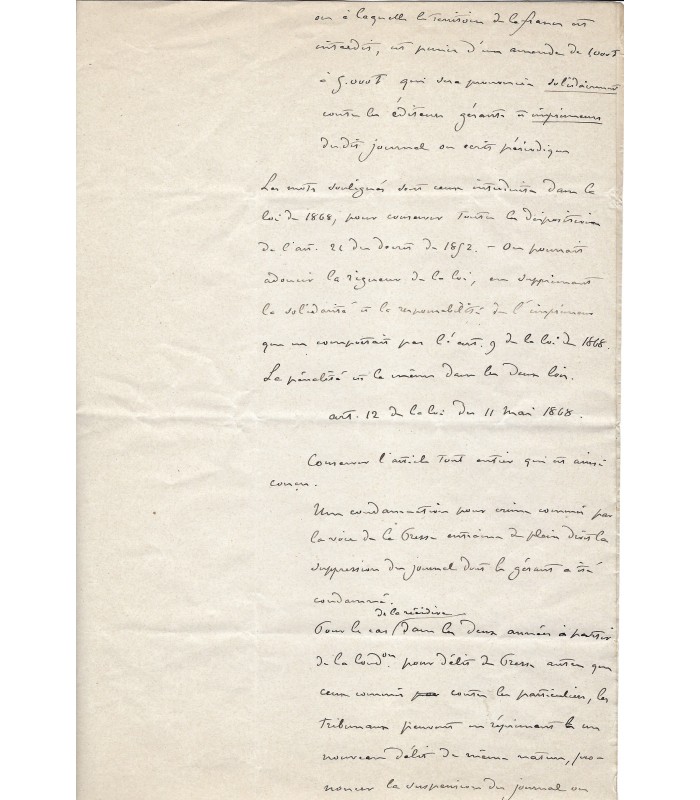 ou à laquelle le territoire de la france est
interdit, est punie d'un amende de 1000f
à 5.000f qui sera prononcée solidairement
contre les éditeurs gérants et imprimeurs
du dit journal ou écrit périodique
Les mots soulignés sont ceux introduits dans la
loi de 1868, pour conserver toutes les dispositions
de l'art. 21 du décret de 1852. - On pourrait
adoucir la rigueur de la loi, en supprimant
la solidarité et la responsabilité de l'imprimeur
que ne comportait pas l'art. 9 de la loi de 1868.
La pénalité est la même dans les deux lois.
art. 12 de la loi du 11 mai 1868.
Conserver l'article tout entier qui est ainsi
conçu.
Une condamnation pour crime commis par
la voie de la Presse entraine de plein droit la
suppression du journal dont le gérant a été
condamné.
de la récidive
Pour le cas dans les deux années à partir
de la cond.on pour délit de Presse autre que
ceux commis contre les particuliers, les
tribunaux peuvent en réprimant un
nouveau délit de même nature, pro-
noncer la suspension du journal ou